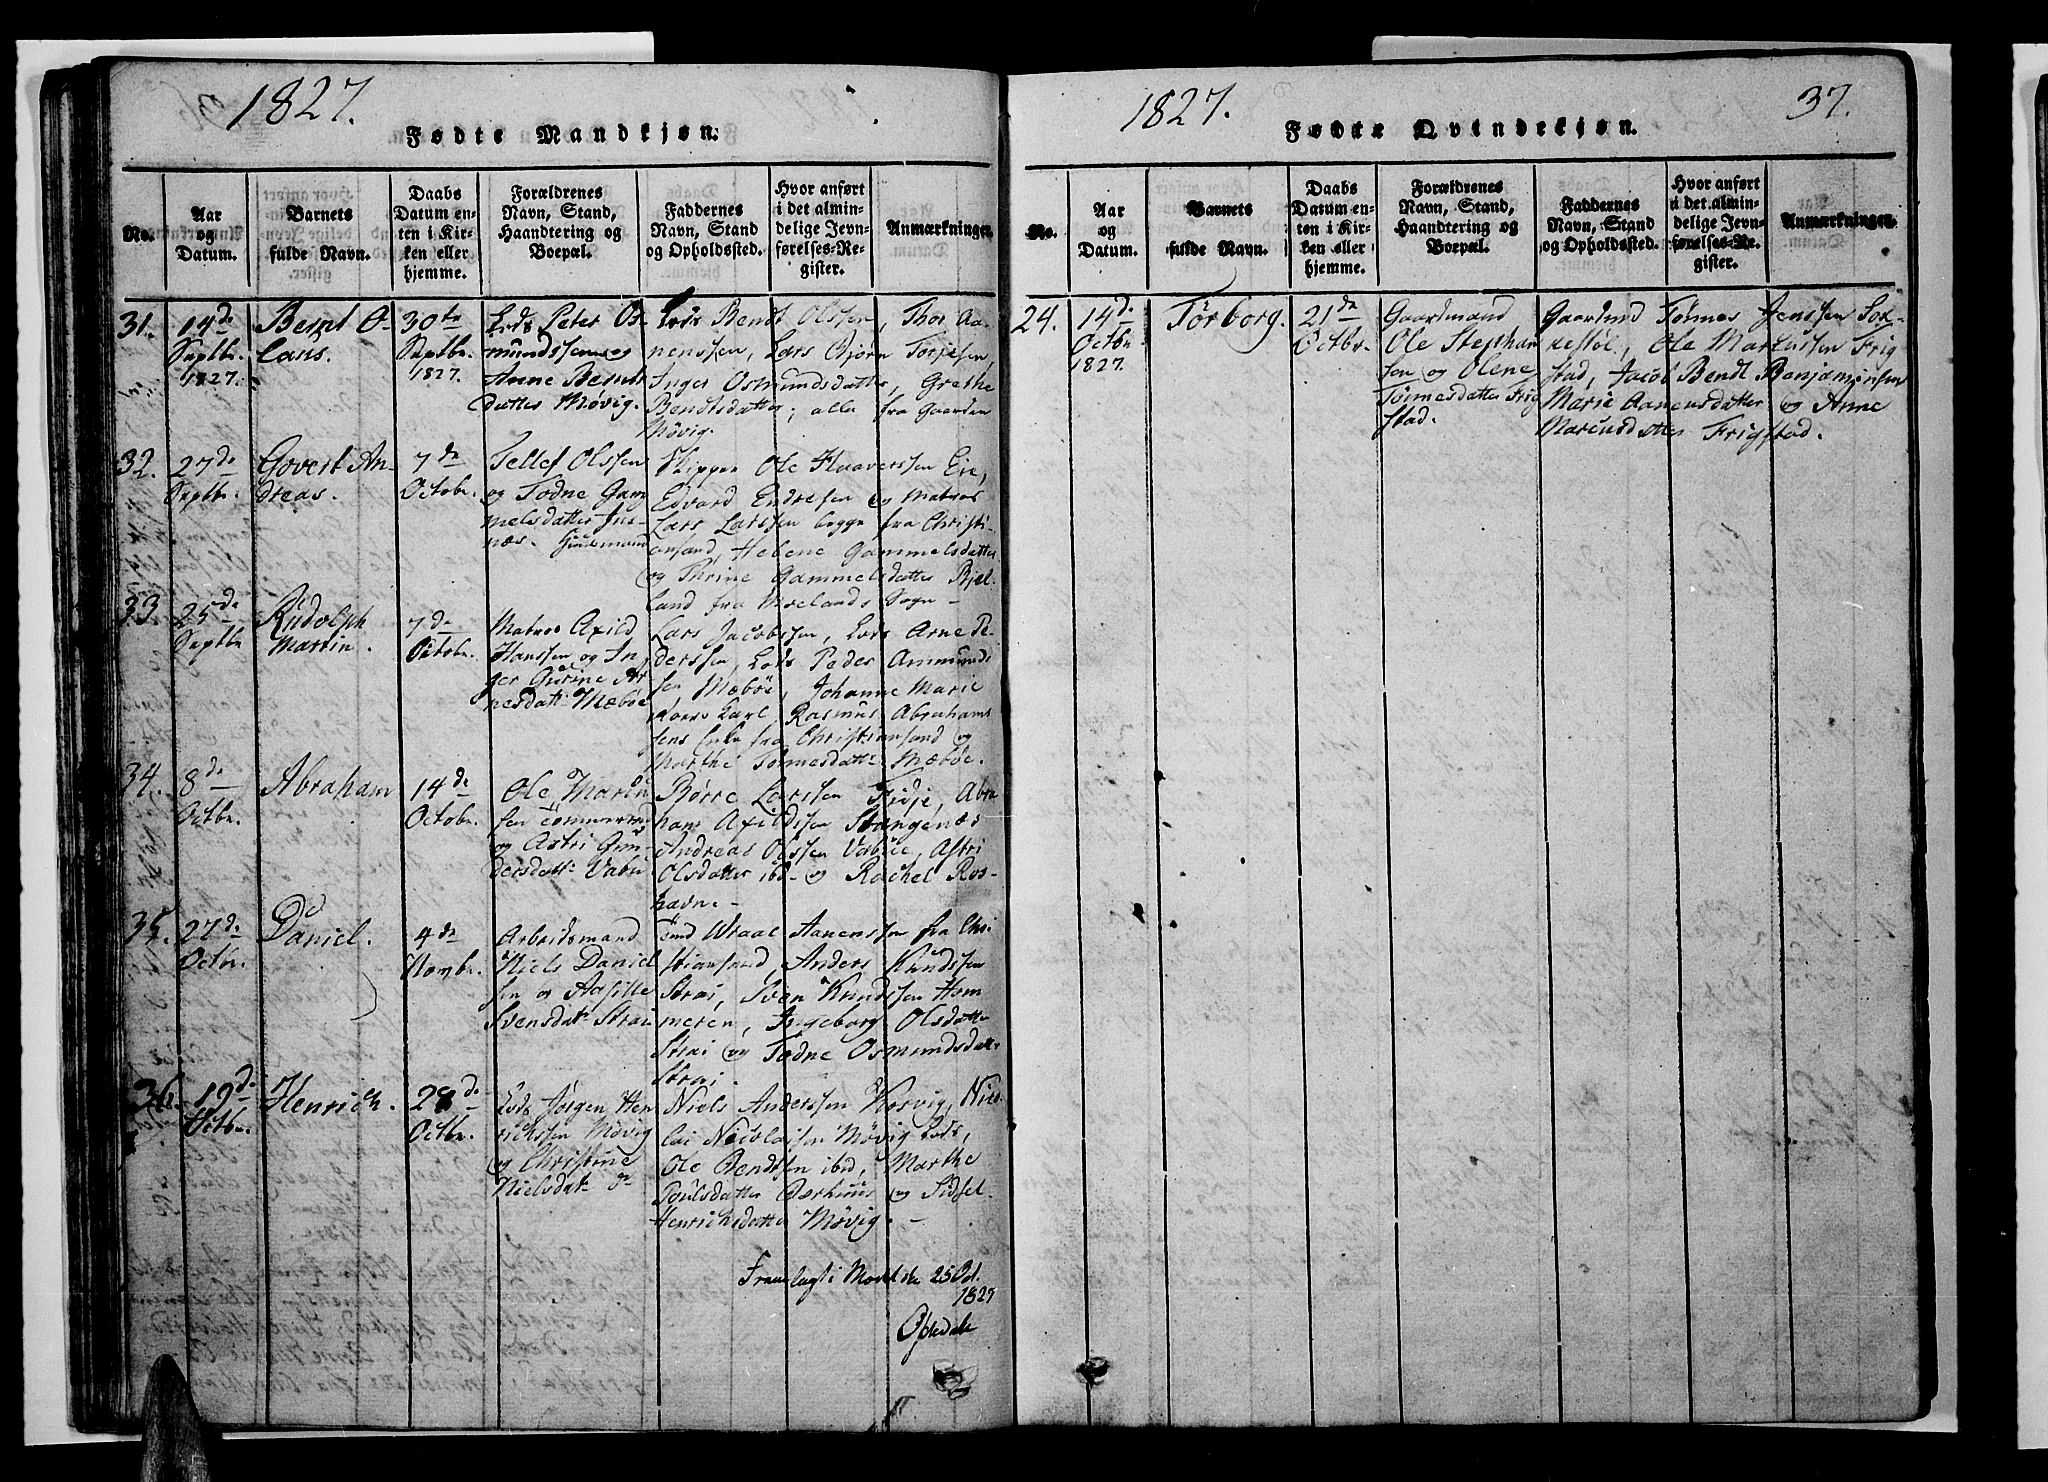 1827.
Fødte Mandkjøn.
No.
Aar
og
Datum.
Barnets
fulde Navn.
Daabs
Datum en-
ten i Kir-
ken eller
hjemme.
Forældrenes
Navn, Stand,
Haandtering og
Boepæl.
Faddernes
Navn, Stand
og Opholdssted.
Hvor anført
i det almin-
delige Jevn-
førelses-Re-
gister.
Anmærkninger.
31.
14de
Septbr.
1827.
Bernt O-
laus.
30te
Septbr.
1827.
Lods Peter Os-
mundssen og
Anne Bernts
datter Møvig.
Lods Bendt Olssen, Thor Aa-
nenssen, Lars Bjørn Torjesen,
Inger Osmundsdatter, Grethe
Bendtsdatter, alle fra Gaarden
Møvig.
32.
27de
Septbr.
Govert An-
dreas.
7de
Octobr.
Tellef Olssen
og Todne Gam-
melsdatter
Huusmand
Skipper Ole
Edvard Endresen og Matros
Lars Larssen begge fra Christi-
ansand, Helene Gammelsdatter
og Thrine Gammelsdatter Bjel-
land fra Sogn -
33.
25de
Septbr
Rudolph
Martin.
7de
Octobr.
Matros Axild
Hanssen og In-
ger Gurine Ar-
nesdattr Mæbøe
Lars Jacobssen, Lods Arne Pe-
derssen, Lods Peder Ammunds
sen Mæbøe, Johanne Marie
Rasmus Abrahams
sens Enke fra Christiansand og
Marthe Tønnesdatter Mæbøe.
34.
8de
Octbr.
Abraham
14de
Octobr.
Ole Martin
sen
og Astri Gun-
dersdattr
Børre Larssen Fidje, Abra
ham Axildssen Stangenæs
Andreas Olssen Vabøe, Astri
Olsdatter ibd og Rachel Ros-
havn -
35.
27de
Octbr.
Daniel.
4de
Novbr.
Arbeidsmand
Niels Daniel
sen og Aasille
Svensdatr Strai
Aanenssen fra Chri
stiansand, Anders Knudssen
Strai, Sven Knudssen Hom
meren, Ingeborg Olsdatter
Strai og Todne Osmundsdatr
Strai.
36.
19de
Octbr.
Henrich.
28de
Octbr.
Lods Jørgen Hen
richssen Møvig
og Christine
Nielsdatr
Niels Anderssen Kosvig, Nico
lai Nicolaisen Møvig Lods,
Ole Bendtsen ibid, Marthe
Poulsdatter og Sidsel
Henrichsdatter Møvig. -
Fremlagt i Mødet den 25 Oct.
1827
Opkdale
1827.
37.
Fødte Qvindekjøn.
No.
Aar
og
Datum.
Barnets
fulde Navn.
Daabs
Datum en-
ten i Kir-
ken eller
hjemme.
Forældrenes
Navn, Stand,
Haandtering og
Boepæl.
Faddernes
Navn, Stand
og Opholdssted.
Hvor anført
i det almin-
delige Jevn-
førelses-Re-
gister.
Anmærkninger.
24.
14d.
Octbr.
1827.
Torborg.
21de
Octbr.
Gaardmand
Ole Stephan
sen og Olene
Tønnesdatter Frig
stad.
Gaardmd Tønnes Jenssen
Ole Martinssen Frig
stad, Jacob Bendt Benjaminsen
Marie Aanensdatter og Anne
Marcusdatter Frigstad.